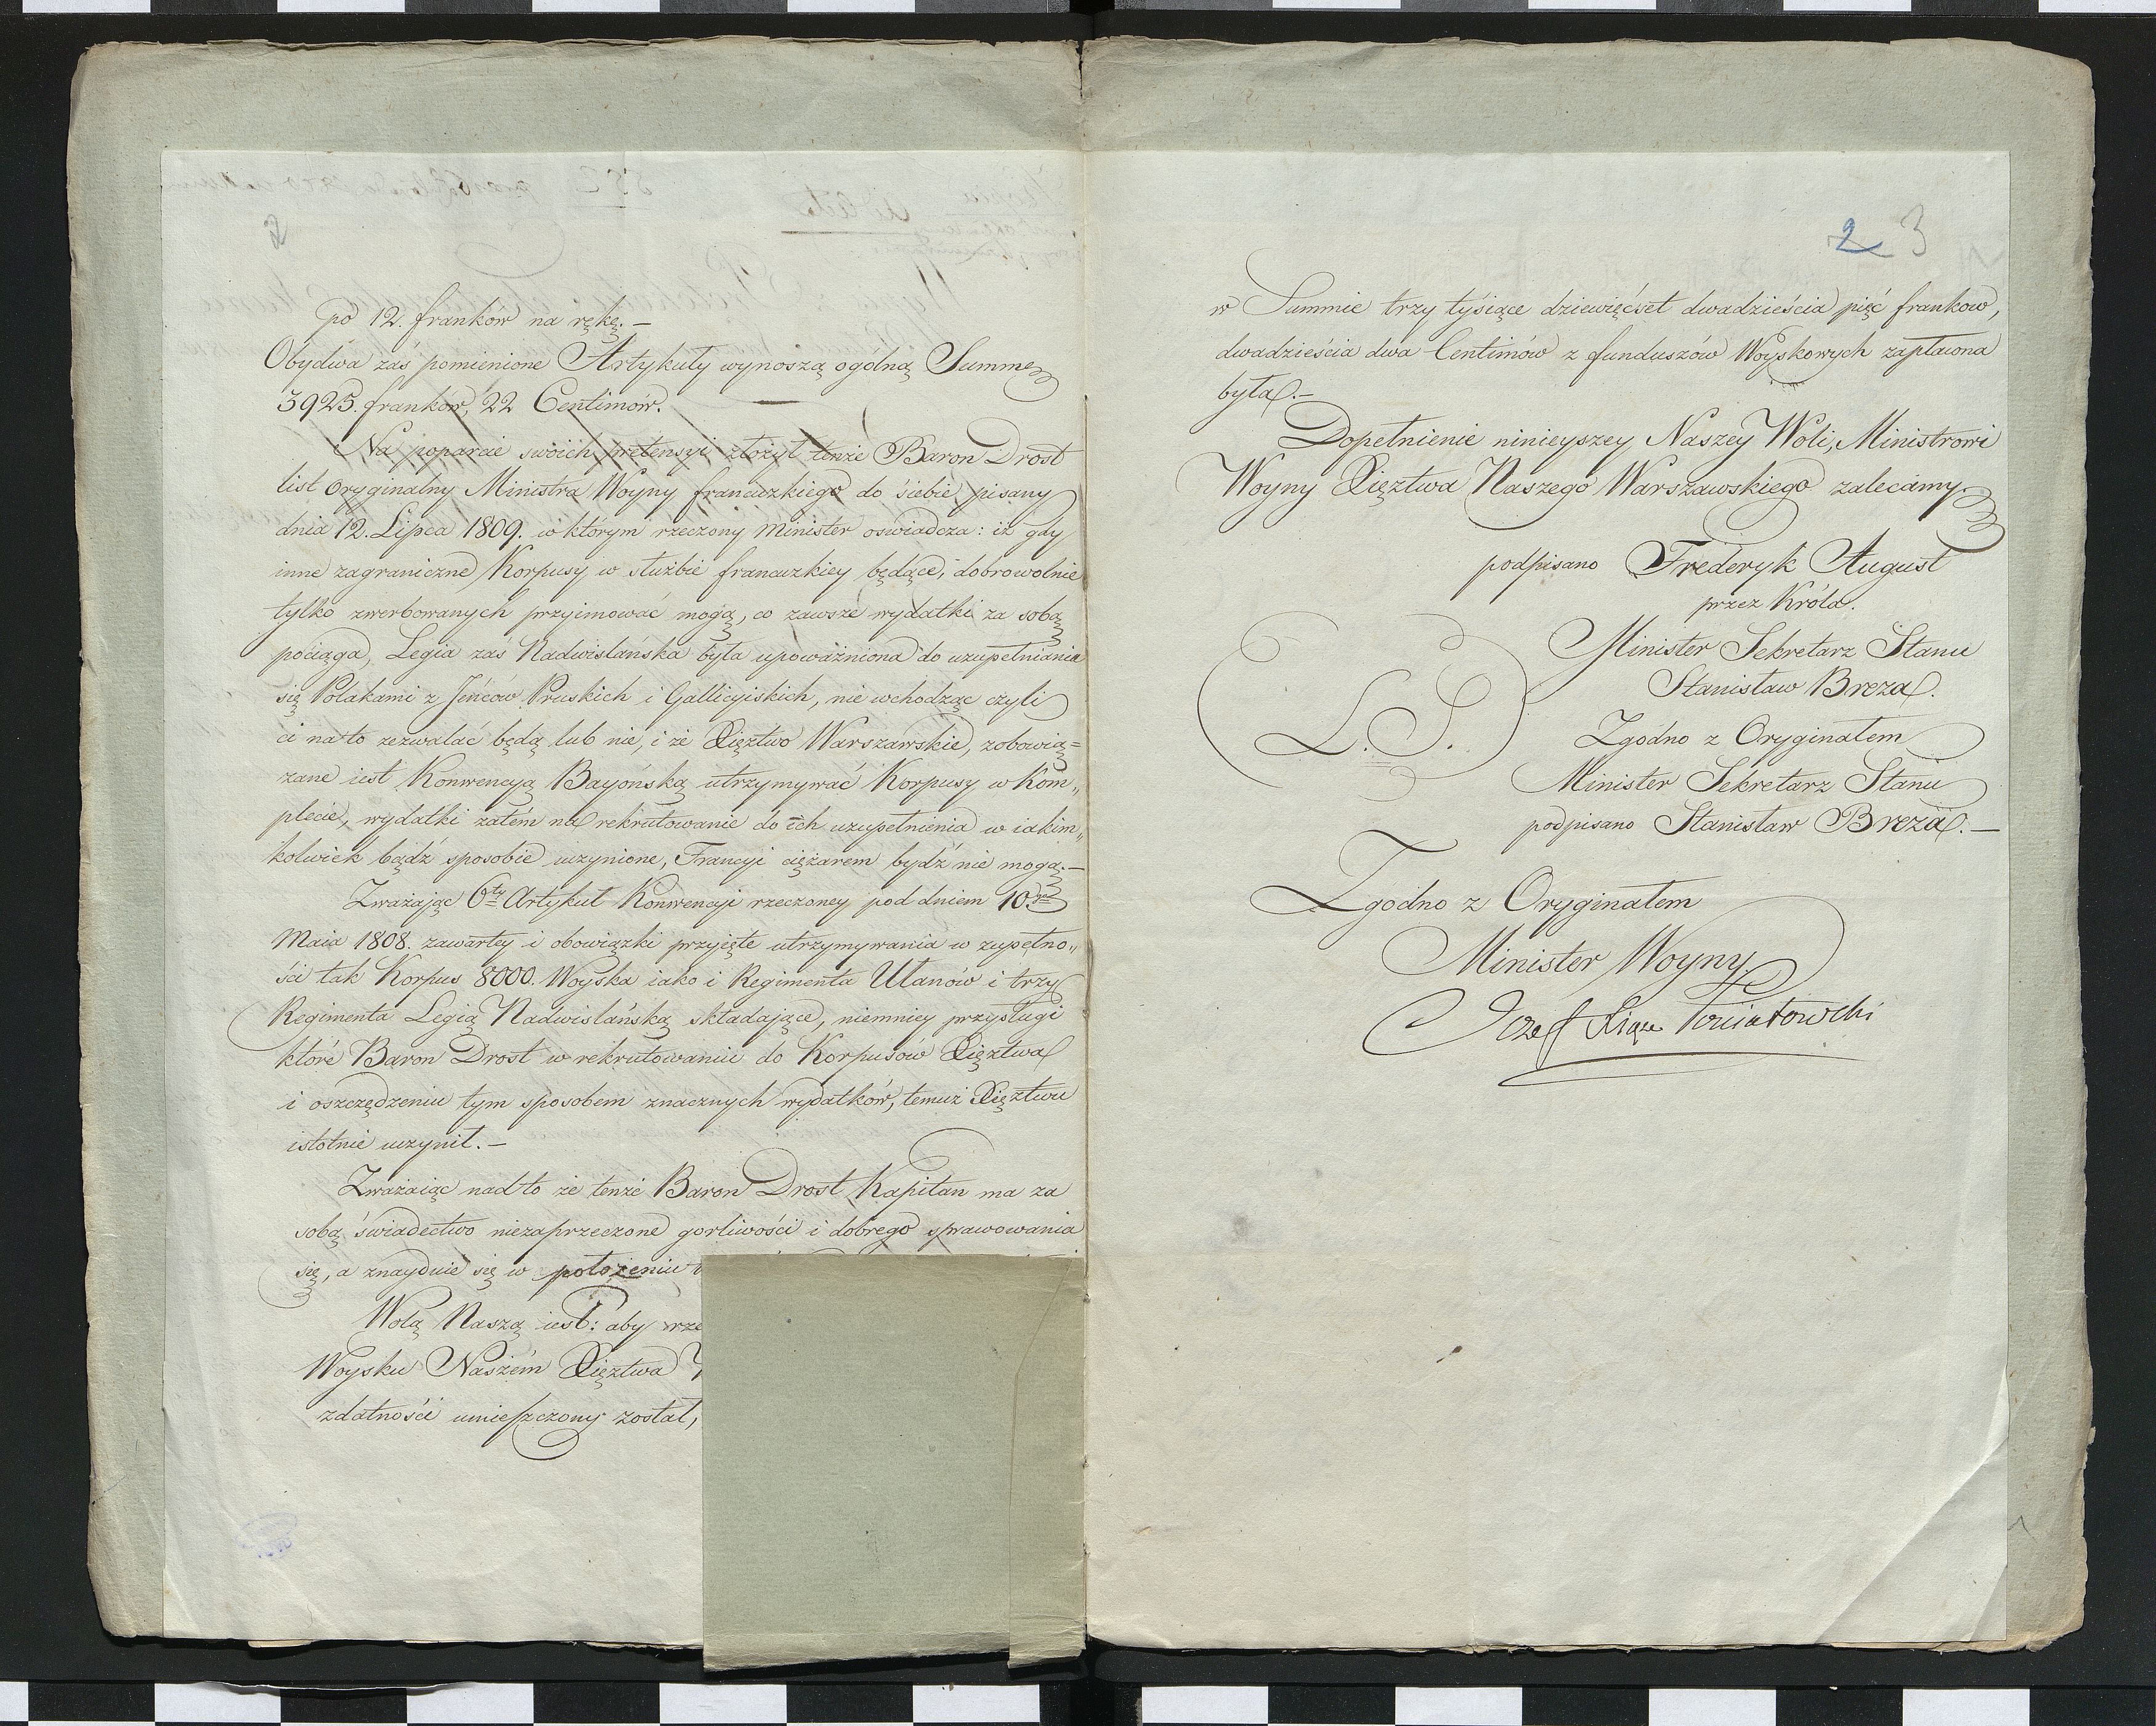 po 12. franków na rękę. —
Obydwa zaś pomienione Artykuły wynoszą ogólną Summę
3925. franków, 22 Centimów. —
Na poparcie swoich pretensyi złożył tenże Baron Drost
list oryginalny Ministra Woyny francuzkiego do siebie pisany
dnia 12. Lipca 1809. w którym rzeczony Minister oświadcza: iż gdy
inne zagraniczne Korpusy w służbie francuzkiey będące, dobrowolnie
tylko zwerbowanych przyimować mogą, co zawsze wydatki za sobą
pociąga, Legia zaś Nadwislańska była upoważniona do uzupełniania
się Polakami z Jeńców Pruskich i Gallicyiskich, nie wchodząc czyli
ci na to zezwalać będą lub nie, i że Xięztwo Warszawskie, zobowią=
zane iest Konwencyą Bayońską utrzymywać Korpusy w Kom„
plecie, wydatki zatém na rekrutowanie do ich uzupełnienia w iakim„
kolwiek bądź sposobie uczynione, Francyi ciężarem bydź nie mogą. —
Zważając 6ty Artykuł Konwencyi rzeczoney pod dniem 10.
Maia 1808. zawartey i obowiązki przyięte utrzymywania w zupełno„
ści tak Korpus 8000. Woyska iako i Regimenta Ułanów i trzy
Regimenta Legią Nadwislańską składające, niemniey przysługi
które Baron Drost w rekrutowaniu do Korpusów Xięztwa
i oszczędzeniu tym sposobem znacznych wydatków, temuż Xięztwu
istotnie uczynił. —
Zważaiąc nadto że tenże Baron Drost Kapitan ma za
sobą świadectwo niezaprzeczone gorliwości i dobrego sprawowania
się, a znayduie się w położeniu
Wolą Naszą iest: aby rze
Woysku Naszém Xięztwa
zdatności umieszczony został,
2 3
w Summie trzy tysiące dziewięćset dwadzieścia pięć frankow,
dwadzieścia dwa Centimów z funduszów Woyskowych zapłacona
była. —
Dopełnienie ninieyszey Naszey Woli, Ministrowi
Woyny Xięztwa Naszego Warszawskiego zalecamy.
podpisano Frederyk August
przez Króla.
Minister Sekretarz Stanu
Stanisław Breza.
L. S.
Zgodno z Oryginałem
Minister Sekretarz Stanu
podpisano Stanisław Breza. —
Zgodno z Oryginałem
Minister Woyny
Józef Xiąże Poniatowski